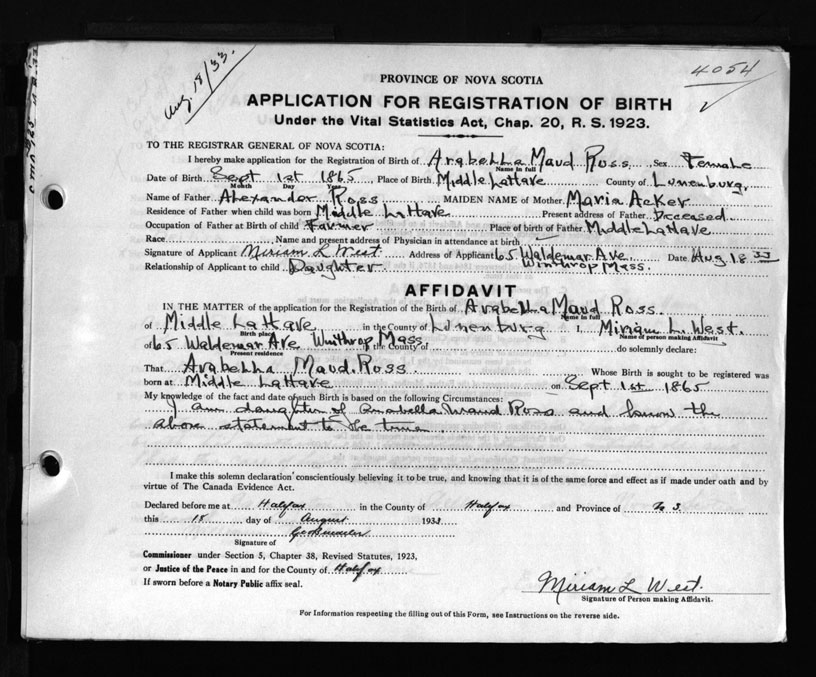 Aug. 18/33.
4054
PROVINCE OF NOVA SCOTIA
APPLICATION FOR REGISTRATION OF BIRTH
Under the Vital Statistics Act, Chap. 20, R. S. 1923.
TO THE REGISTRAR GENERAL OF NOVA SCOTIA:
I hereby make application for the Registration of Birth of Arabella Maud Ross Sex Female
Name in full
Date of Birth Sept 1st 1865 Place of Birth Middle LaHave County of Lunenburg.
Month Day Year
Name of Father Alexander Ross MAIDEN NAME of Mother Maria Acker
Residence of Father when child was born Middle LaHave Present address of Father Deceased.
Occupation of Father at Birth of child Farmer Place of birth of Father Middle LaHave
Race Name and present address of Physician in attendance at birth
Signature of Applicant Miriam L West Address of Applicant 65 Waldemar Ave Winthrop Mass. Date Aug 18 33
Relationship of Applicant to child Daughter
AFFIDAVIT
IN THE MATTER of the application for the Registration of the Birth of Arabella Maud Ross
Name in full
of Middle LaHave in the County of Lunenburg I, Miriam L. West.
Birth place Name of person making Affidavit
of 65 Waldemar Ave Winthrop Mass. the County of do solemnly declare:
Present residence
That Arabella Maud. Ross Whose Birth is sought to be registered was
born at Middle LaHave on Sept 1st 1865
My knowledge of the fact and date of such Birth is based on the following Circumstances:
I am daughter of Anabella Maud Ross and know the
above statement to be true
I make this solemn declaration conscientiously believing it to be true, and knowing that it is of the same force and effect as if made under oath and by
virtue of The Canada Evidence Act.
Declared before me at Halifax in the County of Halifax and Province of
this 18 day of August 1933
Signature of
Commissioner under Section 5, Chapter 38, Revised Statutes, 1923,
or Justice of the Peace in and for the County of Halifax
If sworn before a Notary Public affix seal.
Miriam L West.
Signature of Person making Affidavit.
For Information respecting the filling out of this Form, see Instructions on the reverse side.